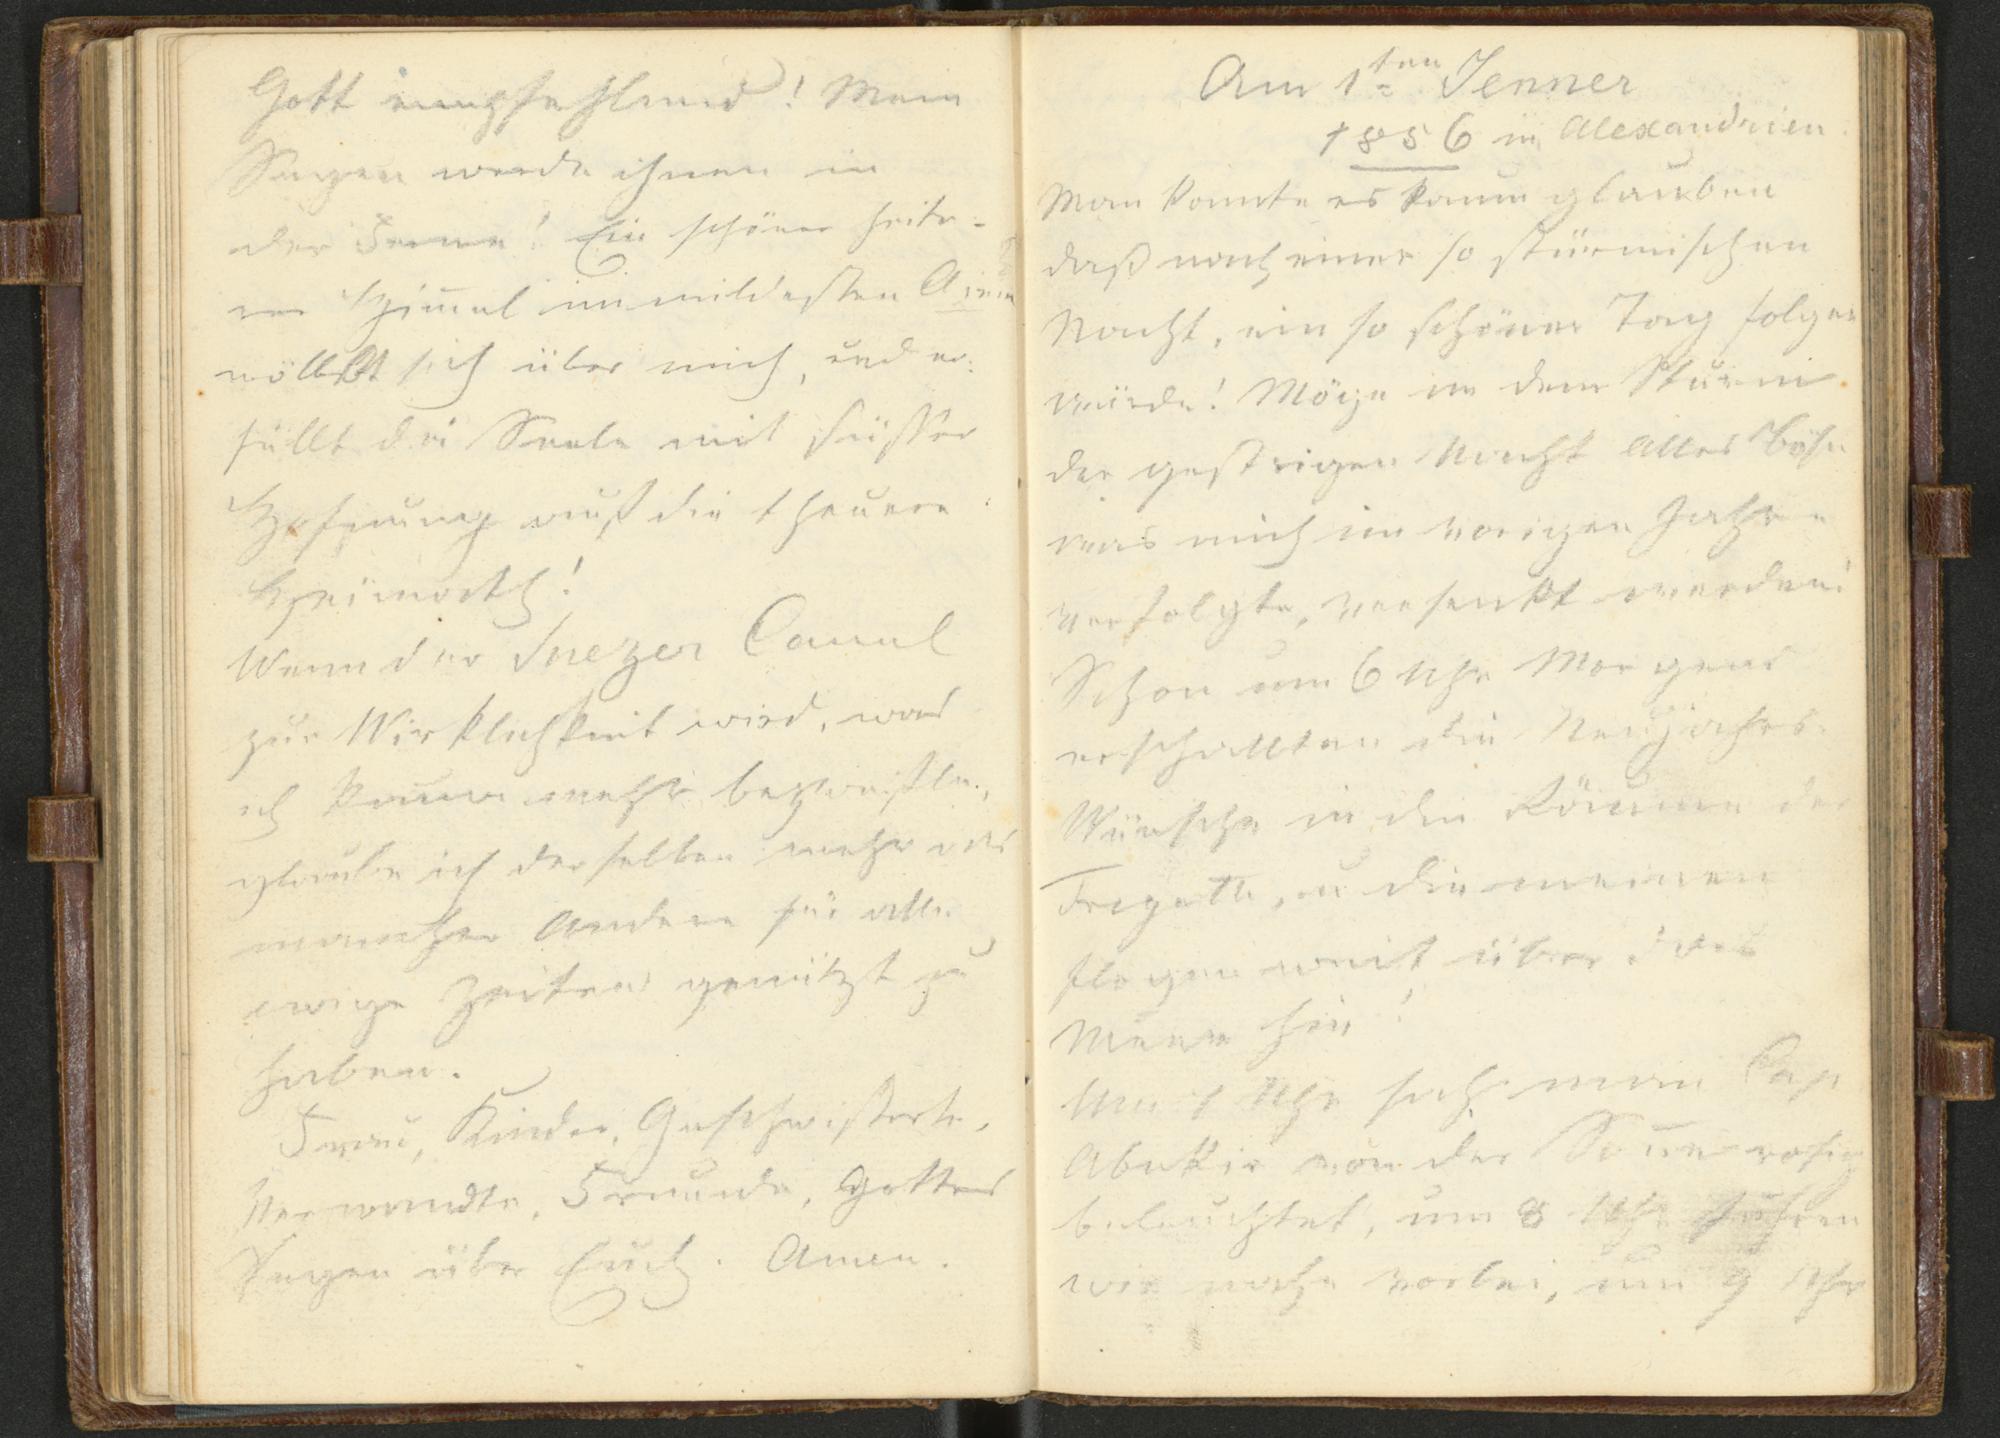 Gott empfehlend! Mein
Segen werde ihnen in
der Ferne! Ein schöner heite-
rer Himel im mildesten
wölbt sich über mich, und er-
füllt die Seele mit süsser
Hofnung auf die theuere
Heimath!
Wenn der Suezer Canal
zur Wirklichkeit wird, was
ich kaum mehr bezweifle,
glaube ich derselben mehr als
mancher Andere für alle
ewige Zeiten genützt zu
haben.
Frau, Kinder, Geschwisterte,
Verwandte, Freunde, Gottes
Segen über Euch. Amen.
Am 1ten Jenner
1856 in Alexandrien
Man konnte es kaum glauben
daß nach einer so stürmischen
Nacht, ein so schöner Tag folgen
würde! Möge in dem Sturm
der gestrigen Nacht Alles Böse
was mich im vorigen Jahre
verfolgte, versenkt werden!
Schon um 6 Uhr Morgens
erschallten die Neujahrs-
Wünsche in den Räumen der
Fregatte, u die meinen
flogen weit über das
Meer hin!
Um 7 Uhr sah man Cap
Abukir von der Soñe rosig
beleuchtet, um 8 Uhr fuhren
wir nahe vorbei, um 9 Uhr